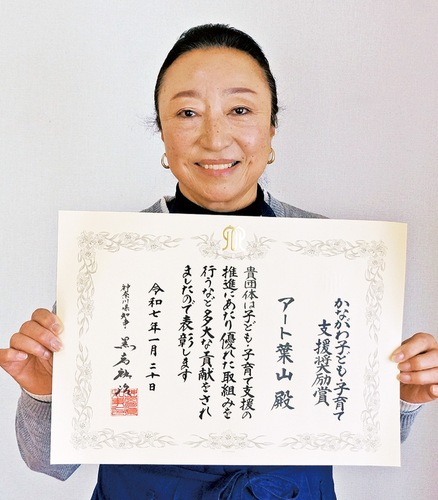 かながわ子ども・子育て
支援奨励賞
アート葉山 殿
貴団体は子ども・子育て支援の
推進にあたり優れた取組みを
行うなど多大な貢献をされ
ましたので表彰します
令和七年一月二十日
神奈川県知事 黒岩祐治